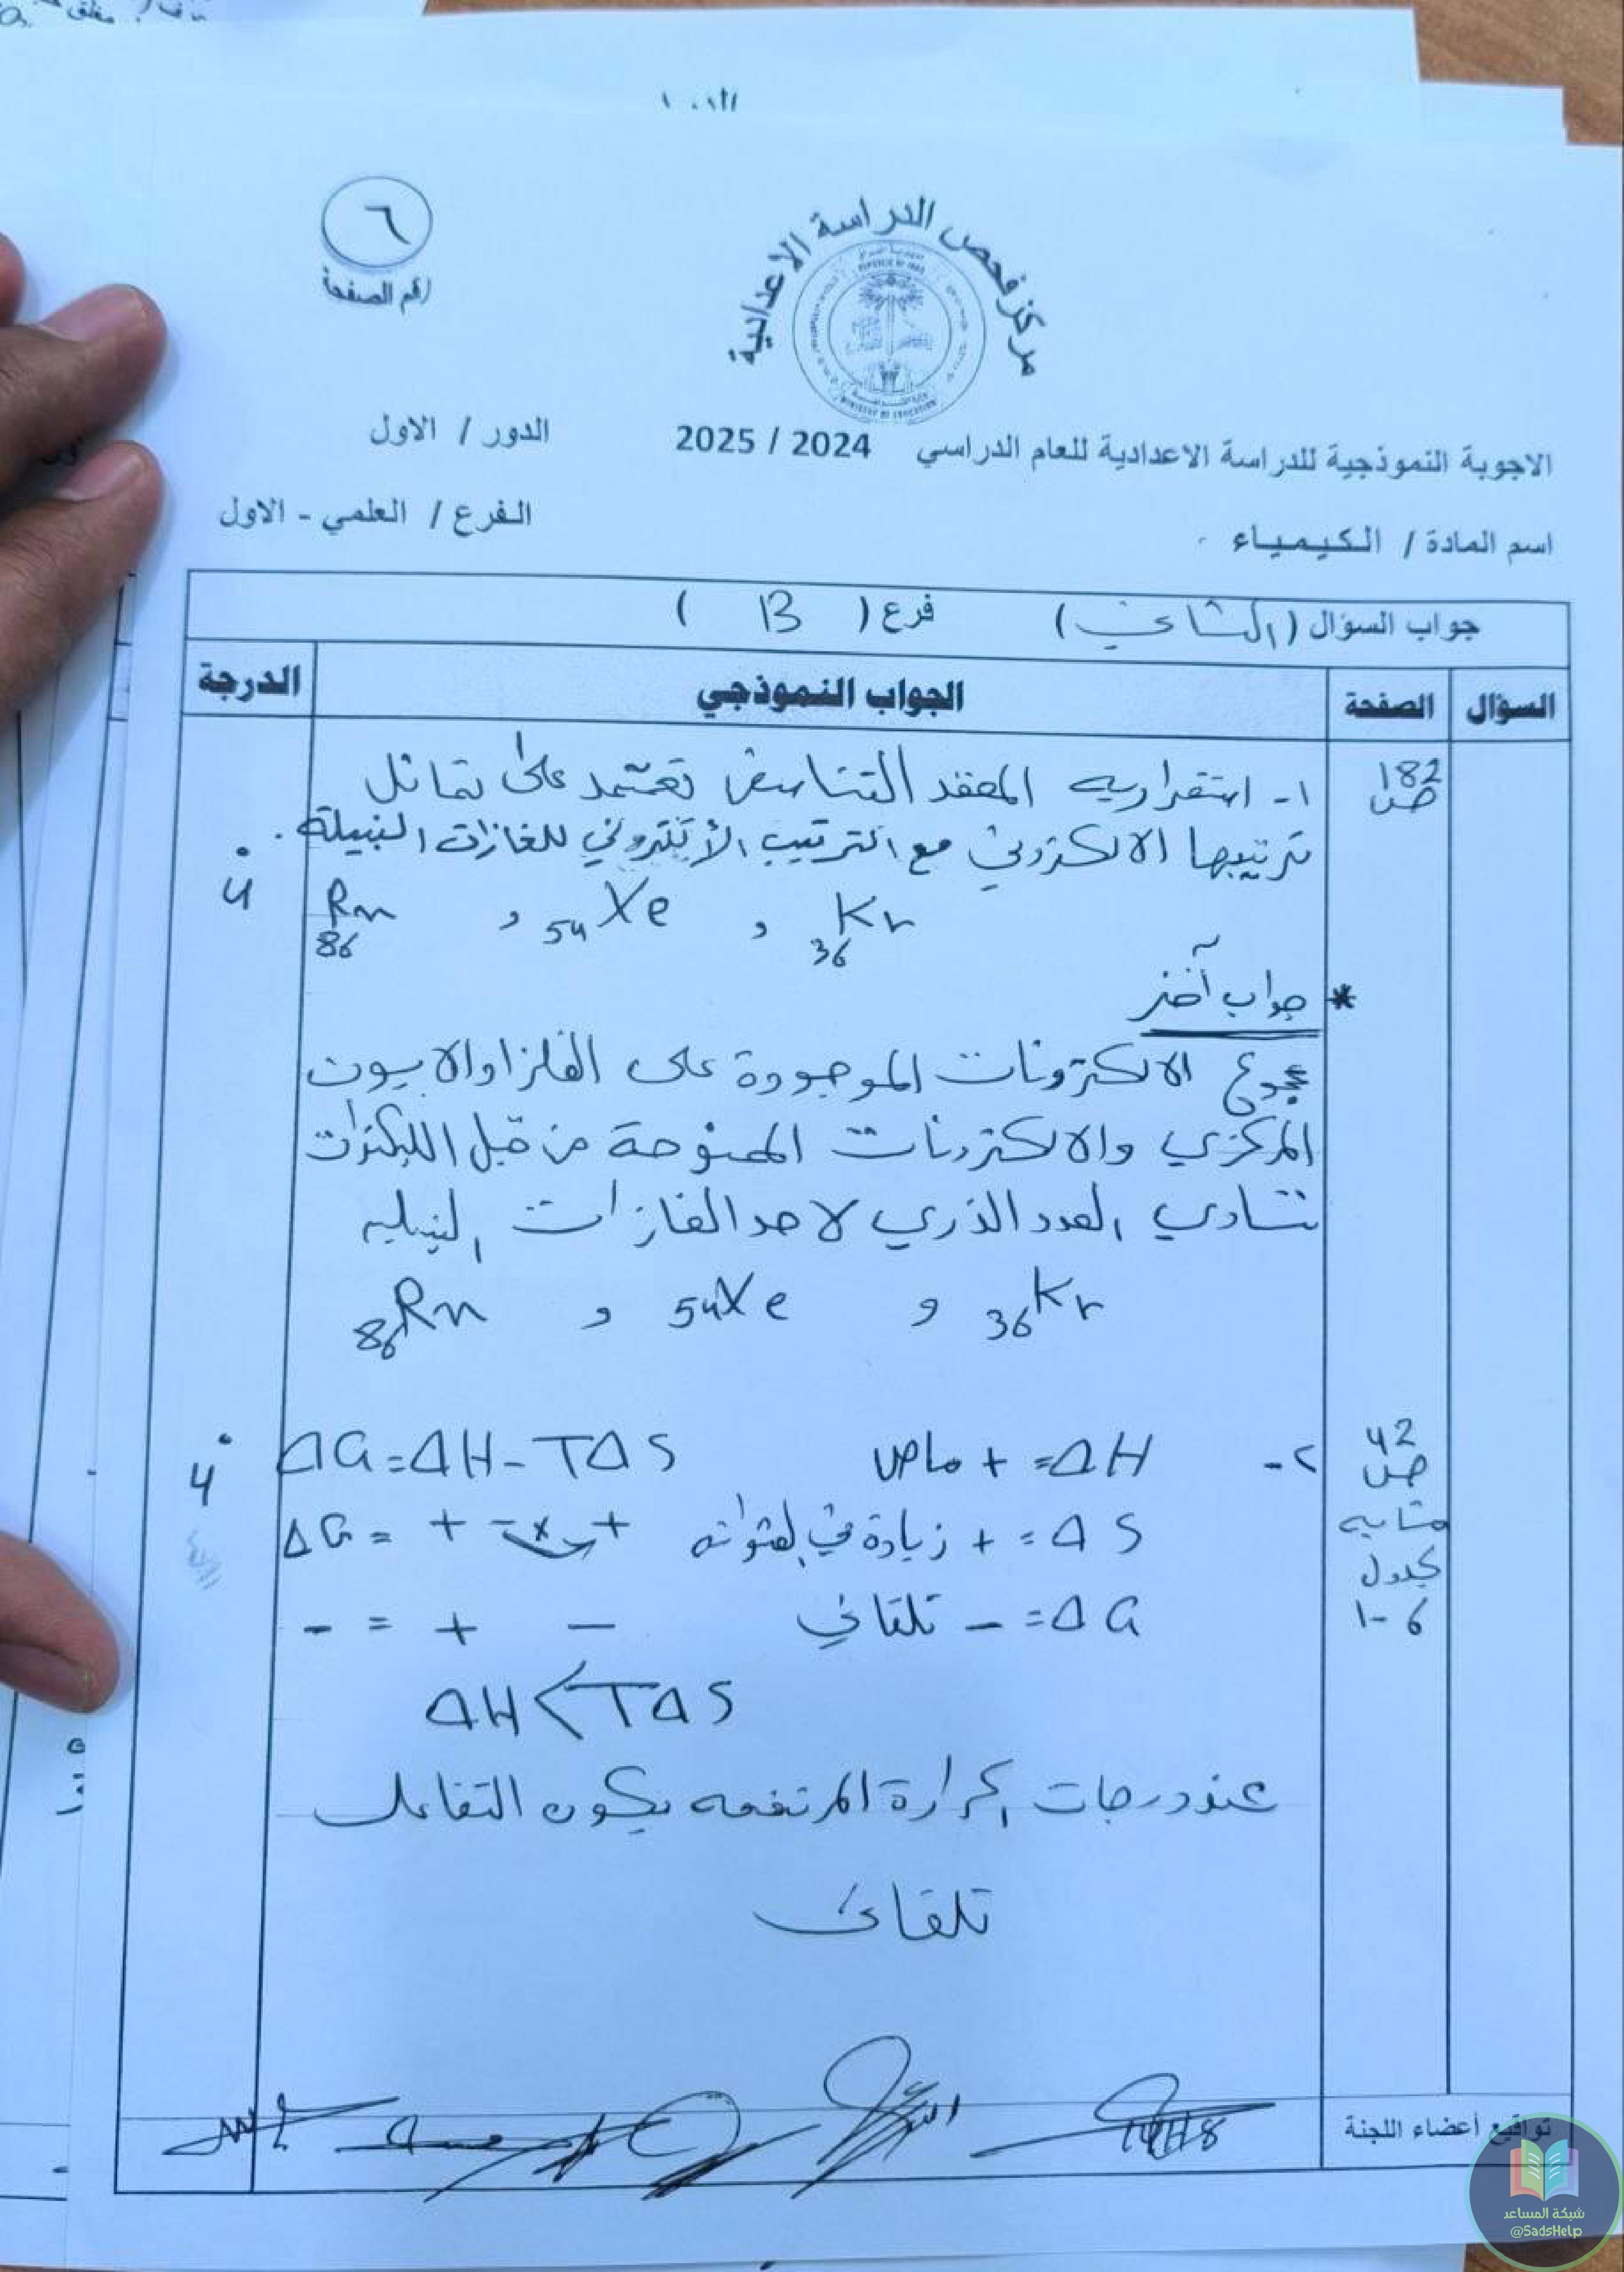 ٦
رقم الصفحة
مركز فحص الدراسة الاعدادية
MINISTRY OF EDUCATION
الاجوبة النموذجية للدراسة الاعدادية للعام الدراسي 2024 / 2025 الدور / الاول
اسم المادة / الكيمياء الفرع / العلمي - الاول
جواب السؤال ( الثاني ) فرع ( B )
السؤال الصفحة الجواب النموذجي الدرجة
182 ص
١- استقرارية المعقد التناسقي تعتمد على تماثل
ترتيبها الالكتروني مع الترتيب الألكتروني للغازات النبيلة .
36Kr , 54Xe , 86Rn
* جواب آخر
مجموع الالكترونات الموجودة على الفلز او الايون
المركزي والالكترونات الممنوحة من قبل الليكندات
تساوي العدد الذري لاحد الغازات النبيلة
36Kr , 54Xe , 86Rn
42 ص
مشابه
لجدول
1-6
٢- ΔH= + ماص ΔG=ΔH-TΔS
ΔS = + زيادة في العشوائية ΔG = + - x +
ΔG = - تلقائي - = + -
ΔH<TΔS
عند درجات الحرارة المرتفعة يكون التفاعل
تلقائي
تواقيع أعضاء اللجنة
شبكة المساعد
@SadsHelp